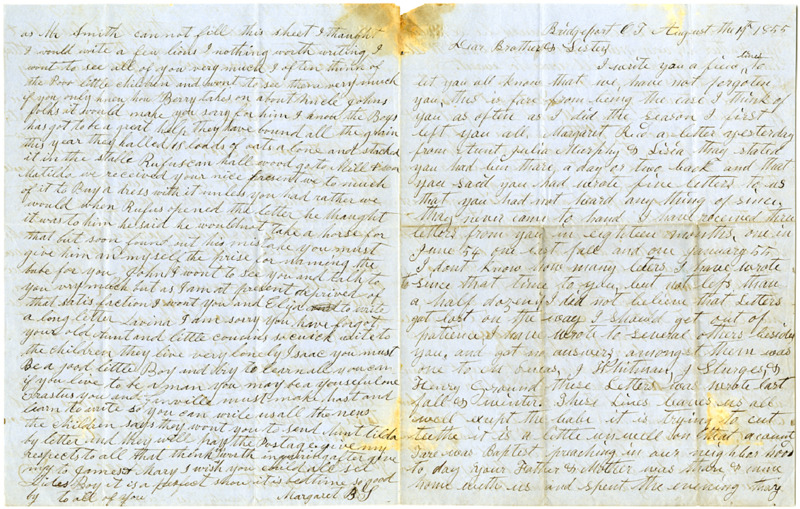 as Mr Smith can not fill this sheet I thought
I would write a few lines I nothing worth writing I
want to see all of you very much I often think of
the Poor little children and want to see them very much
if you only knew how Berry takes on about Uncle Johns
folks it would make you sorry for him I know the Boys
has got to be a great help they have bound all the grain
this year they halled 15 loads of oats alone and stacked
it in the stable Rufus can hall wood go to Mill
we received your nice present we to much
of it to Buy a dress with it unless you had rather we
would when Rufus opened the letter he thought
it was to him he said he would not take a horse for
that but soon found out his mistake you must
give him and my self the prise or naming the
babe for you John I wont to see you and talk to
you very much but as I am at present deprived of
that satisfaction I wont you and to write
a long letter Lavina I am sorry you have forgot
your old aunt and little cousins so write to
the children they live very lonely Isaac you must
Be a good little Boy and try to learn all you can
if you live to be a man you may be a youseful one
Erastus you and must make hast and
learn to write so you can write us all the news
the children says they wont you to send Aunt
by letter and they will pay the Postage give my
respects to all that think worth inquiring after give
my to James & Mary I wish you could all see
Boy it is a perfect show it is bedtime so good
by to all of you Margaret B S
Bridgeport August the 19th 1855
Dear Brother & Sister
I write you a few lines to
let you all know that we have not forgoten
you this is fare from being the case I think of
you as often as I did the season I first
left you all. Margaret Rcd a letter yesterday
from Aunt Julia Murphy & they stated
you had bin thare a day or two back and that
you said you had wrote five letters to us
that you had not heard any thing of since
they never came to hand I have received three
letters from you in eighteen months, one in
June 54 one last fall and one January 55
I dont know how many leters I have wrote
since that time to you, but not less than
a half dozen, if I did not believe that letters
got lost on the way I should get out of
patience I have wrote to several others besides
you, and got no answer, amongst them was
one to J Whitman, J Sturges, &
Henry these Letters was wrote last
fall & winter. These Lines leaves us all
well exept the babe it is trying to cut
teethe it is a little unwell on that account
Thare was Baptist preaching in our neighborhood
to day your Father & Mother was there & came
home with us and spent the evening thay